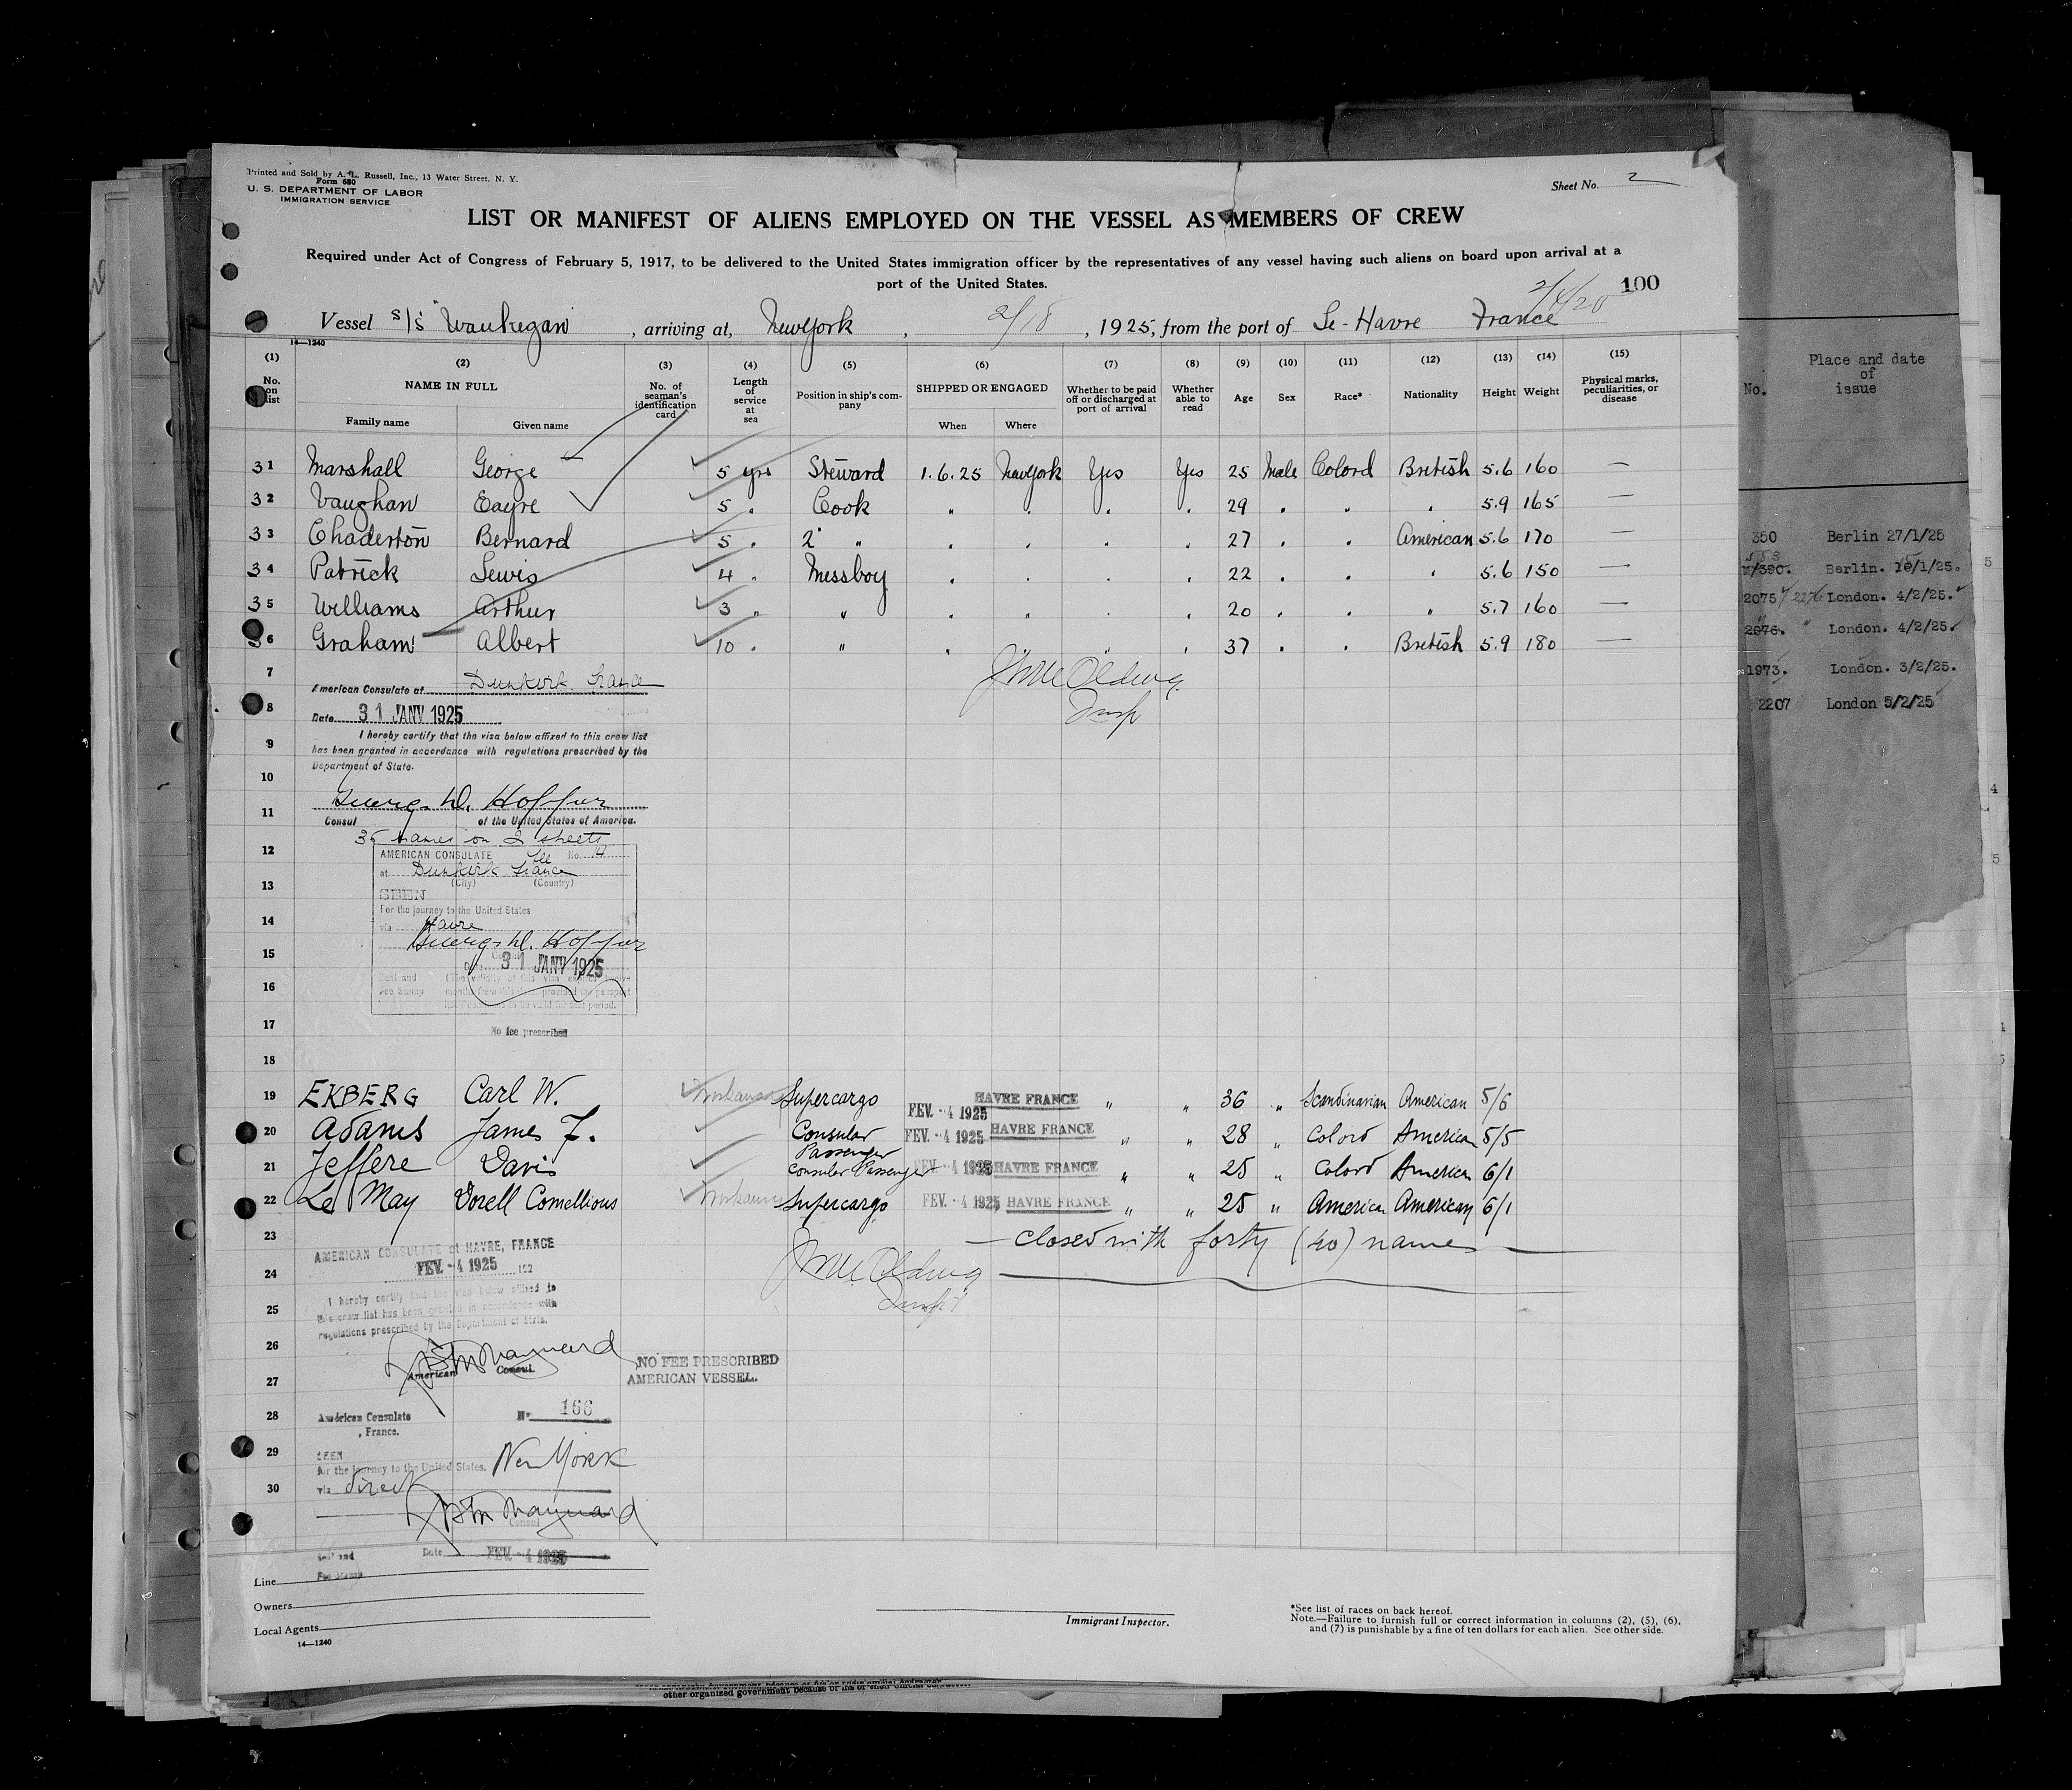 Printed and Sold by A. L. Russell, Inc., 13 Water Street, N. Y.
Form 680
U. S. DEPARTMENT OF LABOR
IMMIGRATION SERVICE
Sheet No. 2
LIST OR MANIFEST OF ALIENS EMPLOYED ON THE VESSEL AS MEMBERS OF CREW
Required under Act of Congress of February 5, 1917, to be delivered to the United States immigration officer by the representatives of any vessel having such aliens on board upon arrival at a
port of the United States.
100
Vessel s/s "Waukegan", arriving at, New York, 2/18, 1925, from the port of Le-Havre France
14—1240
(1) (2) (3) (4) (5) (6) (7) (8) (9) (10) (11) (12) (13) (14) (15)
No. on list NAME IN FULL Family name Given name No. of seaman's identification card Length of service at sea Position in ship's company SHIPPED OR ENGAGED When Where Whether to be paid off or discharged at port of arrival Whether able to read Age Sex Race* Nationality Height Weight Physical marks, peculiarities, or disease
31 Marshall George 5 yrs Steward 1.6.25 New York Yes Yes 25 Male Colord British 5.6 160 —
32 Vaughan Eayre 5 " Cook " " " " 29 " " " 5.9 165 —
33 Chaderton Bernard 5 " 2" " " " " " 27 " " American 5.6 170 —
34 Patrick Lewis 4 " Messboy " " " " 22 " " " 5.6 150 —
35 Williams Arthur 3 " " " " " " 20 " " " 5.7 160 —
36 Graham Albert 10 " " " " " " 37 " " British 5.9 180 —
7
American Consulate at Dunkirk France
8
Date 31 JANV 1925
I hereby certify that the visa below affixed to this crew list
9
has been granted in accordance with regulations prescribed by the
Department of State.
10
11
Consul of the United States of America.
names on 2 sheets
12
AMERICAN CONSULATE No.
at Dunkirk France
(City) (Country)
13
SEEN
For the journey to the United States
14
via Havre
15
31 JANV 1925
16
17
No fee prescribed
18
19 EKBERG Carl W. Workaway Supercargo FEV. -4 1925 HAVRE FRANCE " " 36 " Scandinavian American 5/6
20 Adams James F. Consular Passenger FEV. -4 1925 HAVRE FRANCE " " 28 " Colord American 5/5
21 Jeffere Davis Consular Passenger FEV. -4 1925 HAVRE FRANCE " " 25 " Colord American 6/1
22 Le May Dorell Comellious Workaway Supercargo FEV. -4 1925 HAVRE FRANCE " " 25 " American American 6/1
23 — closed with forty (40) names —
AMERICAN CONSULATE at HAVRE, FRANCE
24
FEV. -4 1925 192
I hereby certify that the visa below affixed to
25
this crew list has been granted in accordance with
regulations prescribed by the Department of State.
26
American Consul
NO FEE PRESCRIBED
27
AMERICAN VESSEL.
28
American Consulate No 166
, France.
29
SEEN
for the journey to the United States. New York
30
via direct
Consul
Seal and Date FEV. -4 1925
Fee Stamp
Line
Owners
Local Agents
14—1240
Immigrant Inspector.
*See list of races on back hereof.
Note.—Failure to furnish full or correct information in columns (2), (5), (6),
and (7) is punishable by a fine of ten dollars for each alien. See other side.
No. Place and date of issue
350 Berlin 27/1/25
Berlin. 1/25.
2075 2276 London. 4/2/25.
2076. " London. 4/2/25.
1973. London. 3/2/25.
2207 London 5/2/25
other organized government because of his or their official character.